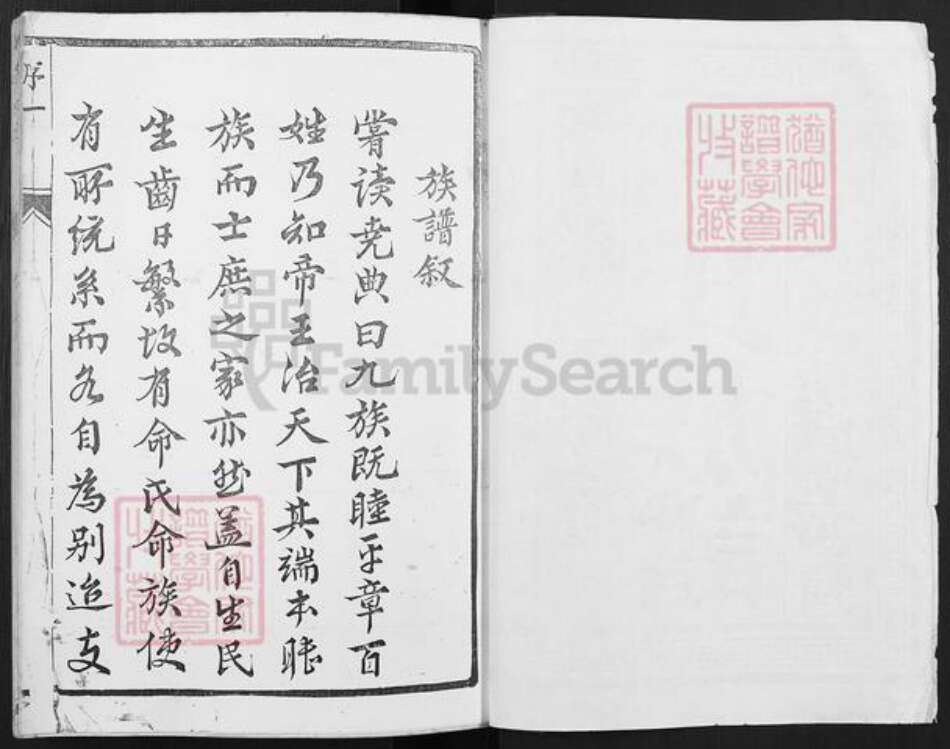 族譜叙
嘗读尭典曰九族既睦平章百
姓乃知帝王治天下其端本睦
族而士庶之家亦然盖自生民
生齒日繁故有命氏命族使
有所统系而各自為别迨支
序一
猶他家
譜學會
收藏
FamilySearch